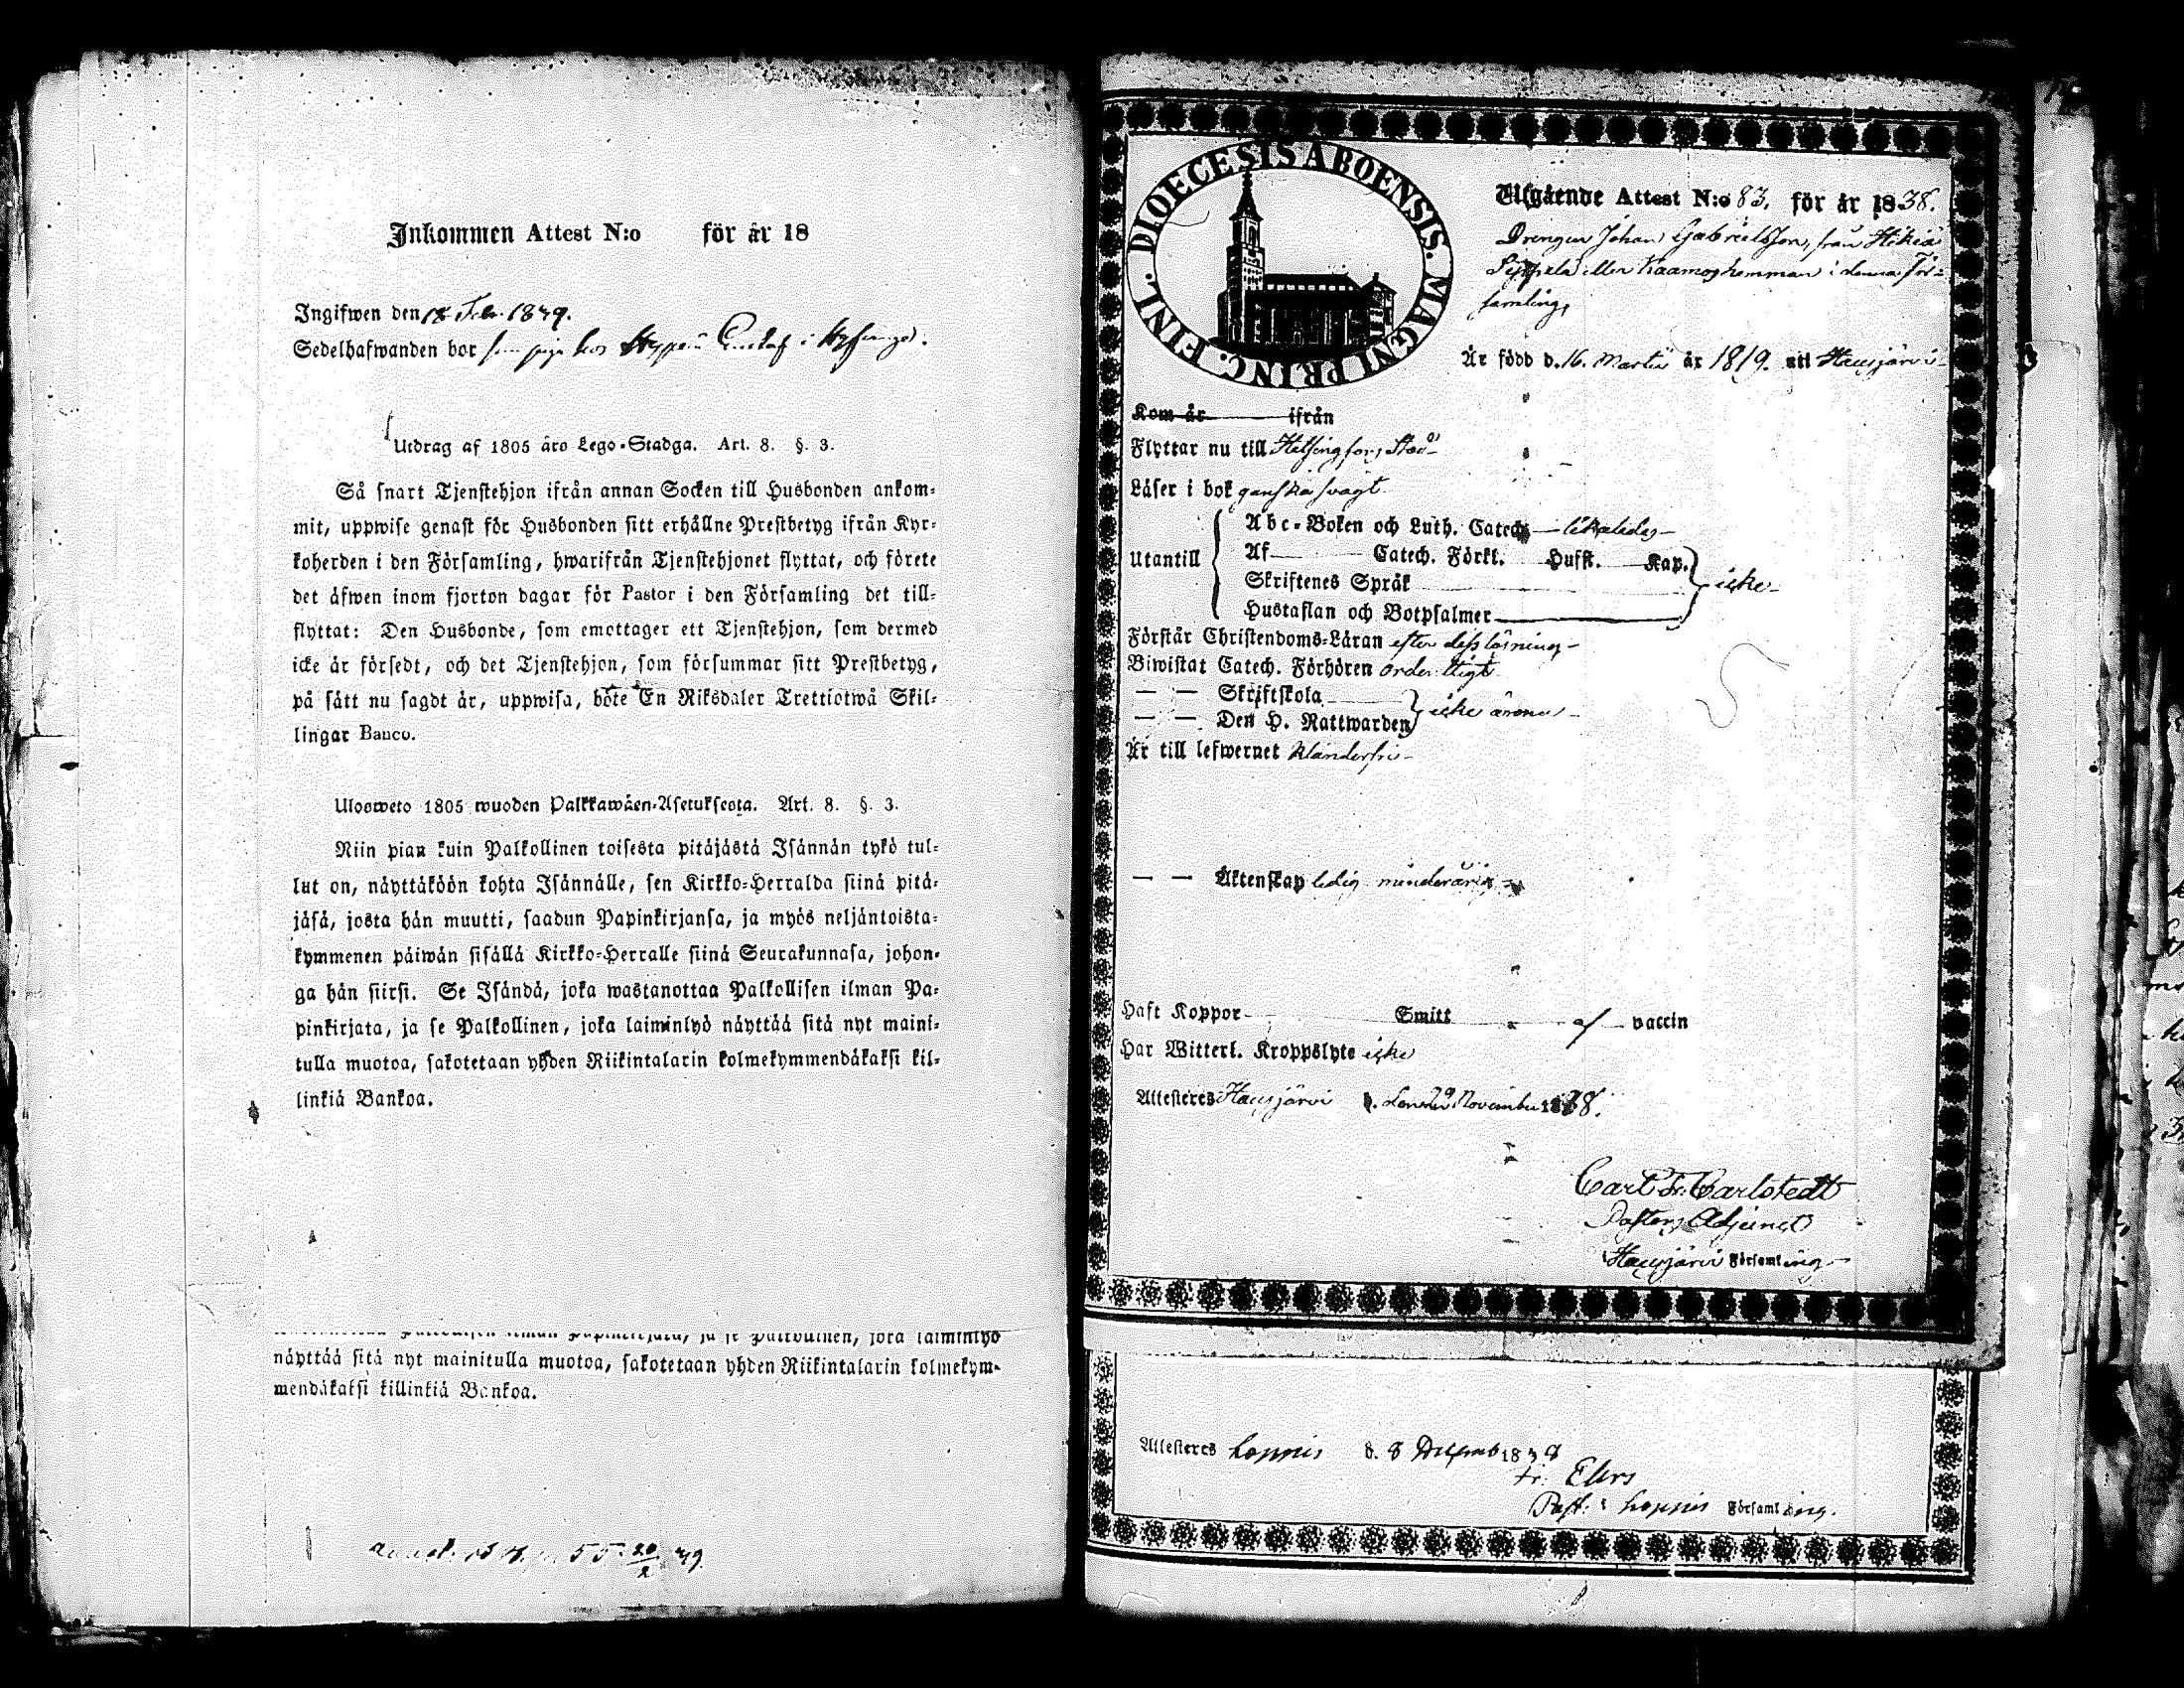 Inkommen Attest N:o för år 18
Ingifwen den 18 Febr. 1839.
Sedelhafwanden bor som piga hos Gustaf i
Utdrag af 1805 års Lego-Stadga. Art. 8. §. 3.
Så snart Tjenstehjon ifrån annan Socken till Husbonden ankom-
mit, uppwise genast för Husbonden sitt erhållne Prestbetyg ifrån Kyr-
koherden i den Församling, hwarifrån Tjenstehjonet flyttat, och förete
det äfwen inom fjorton dagar för Pastor i den Församling det till-
flyttat: Den Husbonde, som emottager ett Tjenstehjon, som dermed
icke är försedt, och det Tjenstehjon, som försummar sitt Prestbetyg,
på sätt nu sagdt är, uppwisa, böte En Riksdaler Trettiotwå Skil-
lingar Banco.
Ulosweto 1805 wuoden Palkkawäen-Asetuksesta. Art. 8. §. 3.
Niin pian kuin Palkollinen toisesta pitäjästä Isännän tykö tul-
lut on, näyttäköön kohta Isännälle, sen Kirkko-Herralda siinä pitä-
jäsä, josta hän muutti, saadun Papinkirjansa, ja myös neljäntoista-
kymmenen päiwän sisällä Kirkko-Herralle siinä Seurakunnasa, johon-
ga hän siirsi. Se Isändä, joka wastanottaa Palkollisen ilman Pa-
pinkirjata, ja se Palkollinen, joka laiminlyö näyttää sitä nyt maini-
tulla muotoa, sakotetaan yhden Riikintalarin kolmekymmendäkaksi kil-
linkiä Bankoa.
ilman Papinkirjata, ja se Palkollinen, joka laiminlyö
näyttää sitä nyt mainitulla muotoa, sakotetaan yhden Riikintalarin kolmekym-
mendäkaksi killinkiä Bankoa.
DIOECESIS ABOENSIS. MAGNI PRINC. FINL.
Utgående Attest N:o 83. för år 1838.
Drengen Johan Gabrielsson, från Hikiä
Seppälä eller Kaamos hemman i denna För-
samling,
Är född d. 16. Martii år 1819. uti Hausjärvi
Kom år ifrån
Flyttar nu till Helsingfors Stad
Läser i bok ganska svagt
Utantill
Abc-Boken och Luth. Catech. likaledes
Af Catech. Förkl. Hufst. Kap.
Skriftenes Språk
icke
Hustaflan och Botpsalmer
Förstår Christendoms-Läran efter dess läsning
Biwistat Catech. Förhören ordentligt
— — Skriftskola
— — Den H. Nattwarden
icke ännu
Är till lefwernet klanderfri
— — Äktenskap ledig minderårig
Haft Koppor Smitt af vaccin
Har Witterl. Kroppslyte icke
Attesteres Hausjärvi d. den 29 November 1838.
Carl Fr. Carlstedt
Pastors Adjunct
Hausjärvi Församling
Attesteres Loppis d. 8 Decemb 1838
Fr. Elers
Past. i Loppis Församling.